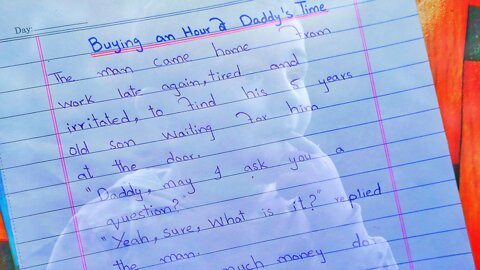 Day:
Buying an Hour of Daddy's Time
The man came home from
work late again, tired and
irritated, to find his 5 years
old son waiting for him
at the door.
"Daddy, may I ask you a
question?"
"Yeah, sure, what is it?" replied
the man.
much money do